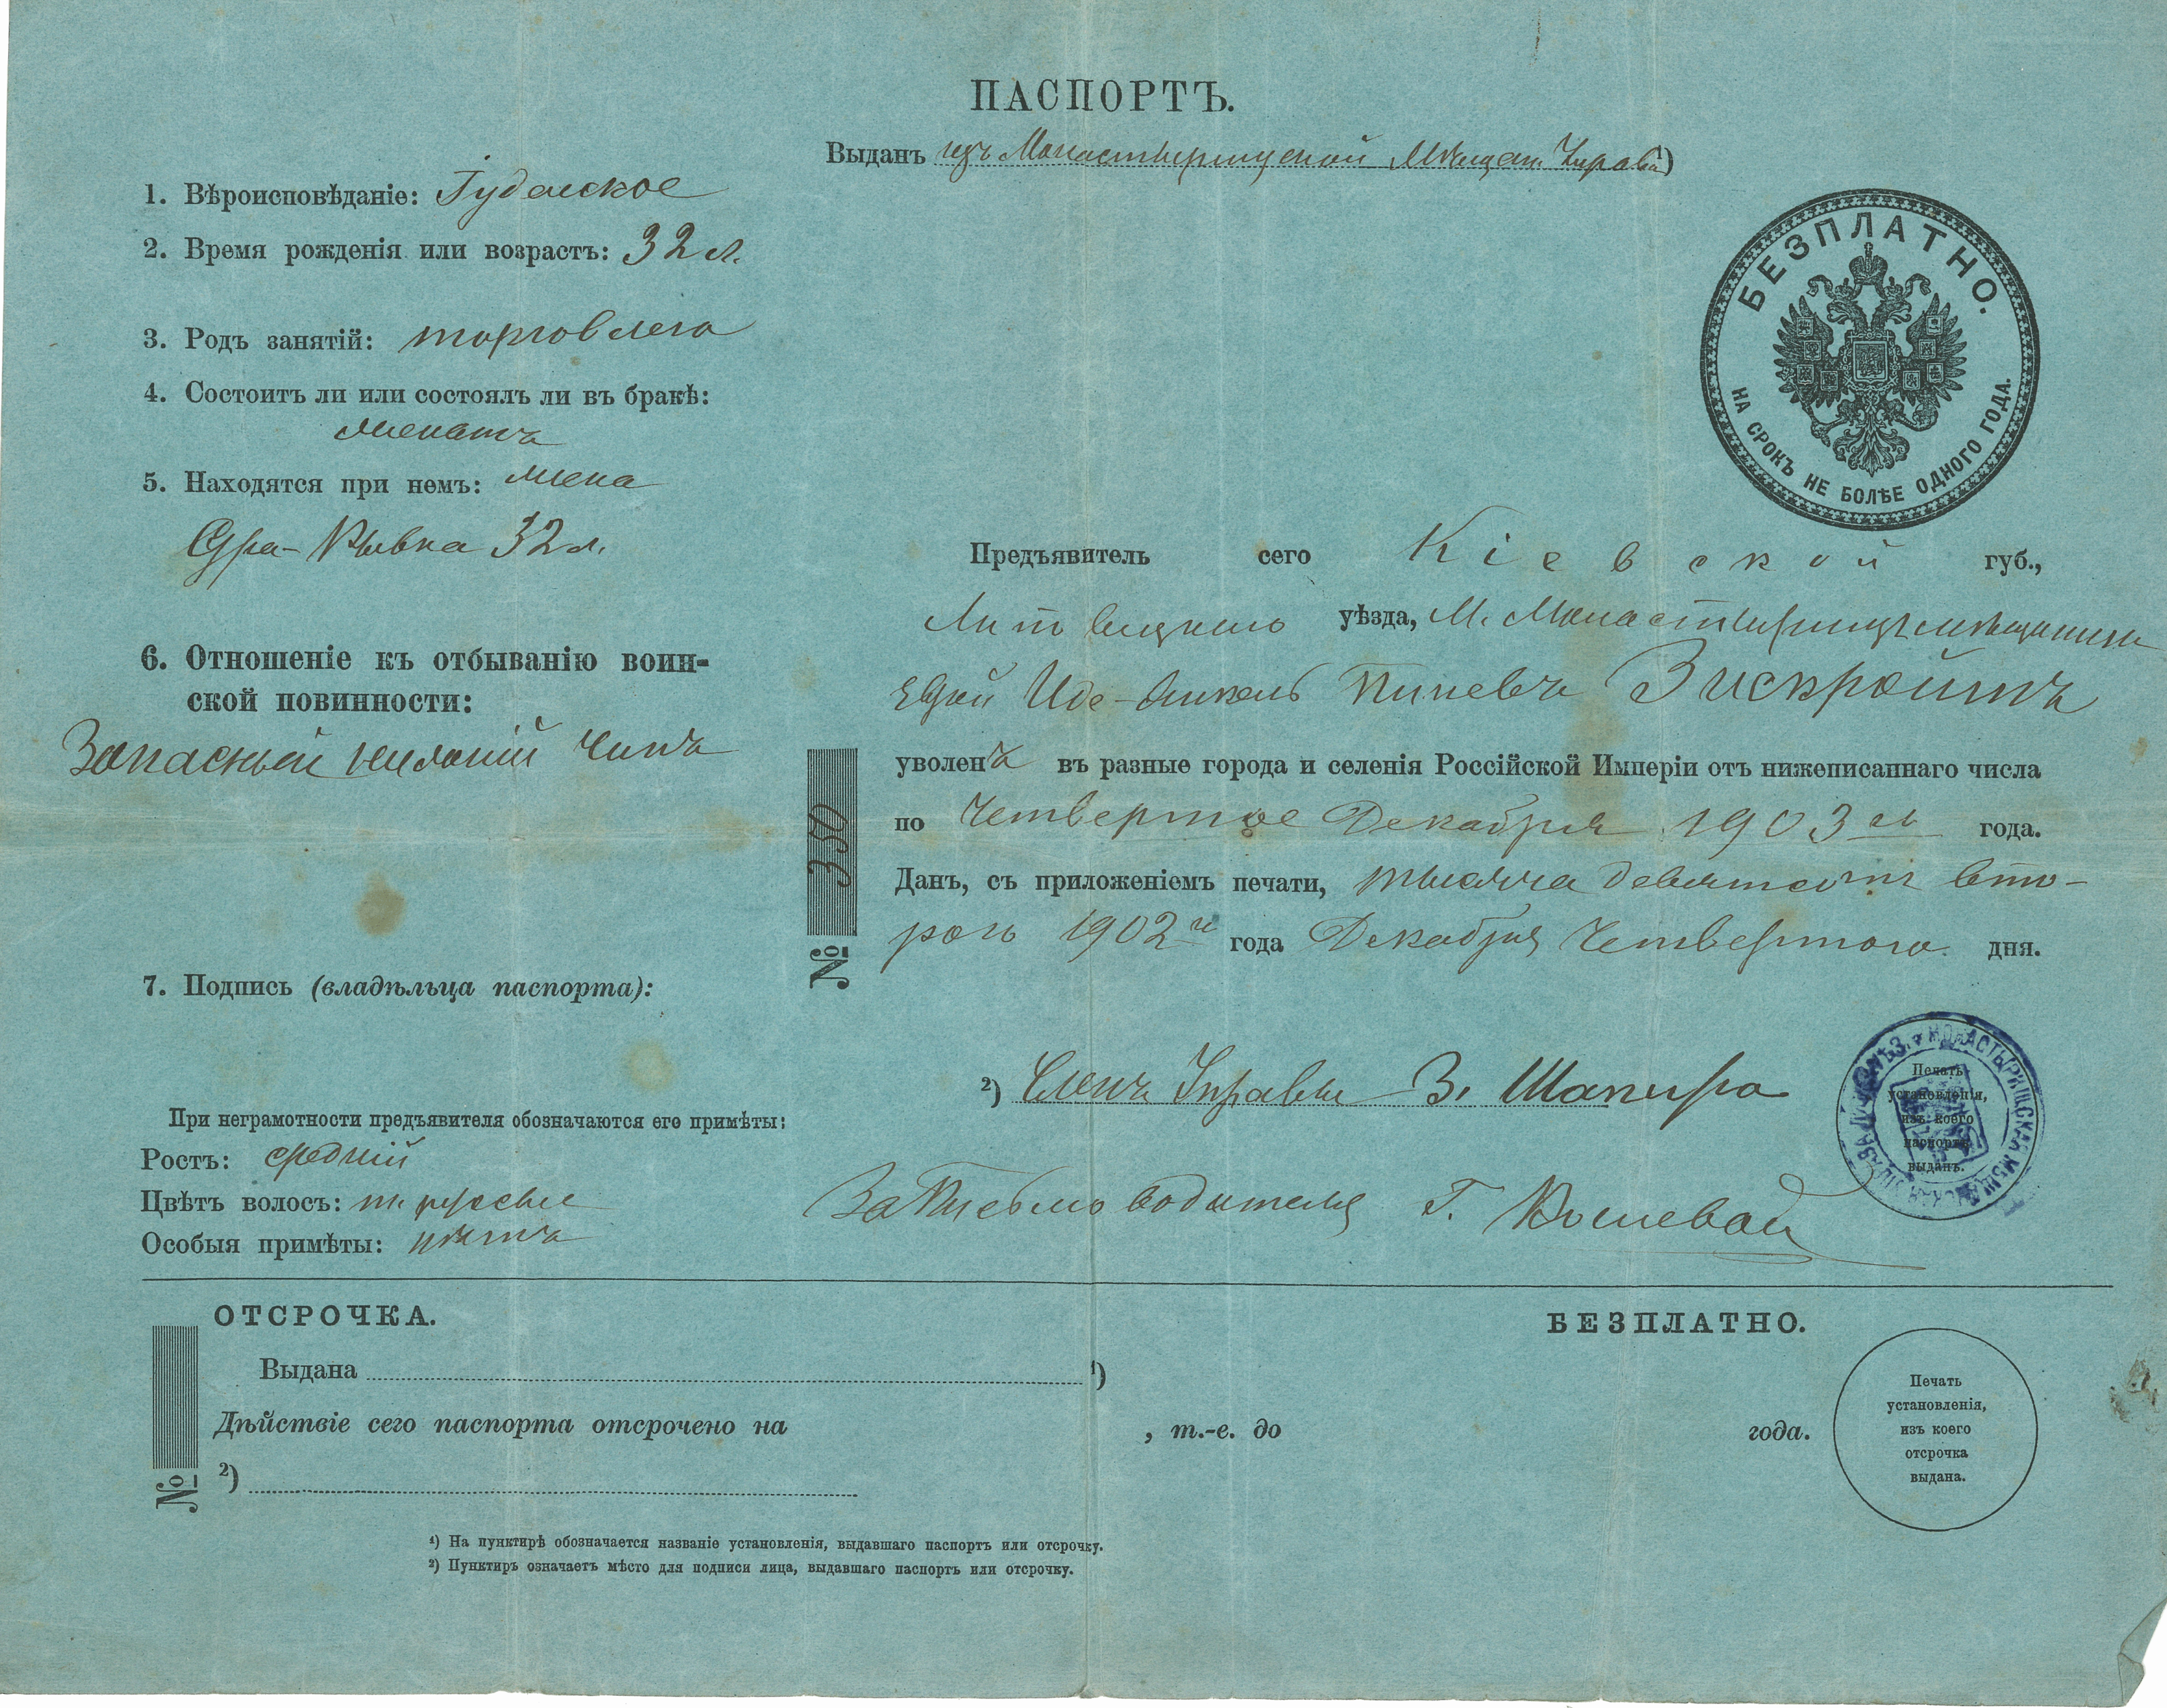 ПАСПОРТЪ.
Выданъ изъ Монастырищской Мѣщан. Управы
1. Вѣроисповѣданіе: Іудейское
2. Время рожденія или возрастъ: 32 л.
3. Родъ занятій: торговлею
4. Состоитъ ли или состоялъ ли въ бракѣ:
женатъ
5. Находятся при немъ: жена
Сура-Рывка 32 л.
6. Отношеніе къ отбыванію воин-
ской повинности:
Запасный нижній чинъ
7. Подпись (владѣльца паспорта):
При неграмотности предъявителя обозначаются его примѣты:
Ростъ: средній
Цвѣтъ волосъ: т. русые
Особыя примѣты: нѣтъ
БЕЗПЛАТНО.
НА СРОКЪ НЕ БОЛѢЕ ОДНОГО ГОДА.
Предъявитель сего Кіевской губ.,
уѣзда, М. Монастырищъ мѣщанинъ
Пиневъ Зискройтъ
уволенъ въ разные города и селенія Россійской Имперіи отъ нижеписаннаго числа
по Четвертое Декабря 1903 го года.
Данъ, съ приложеніемъ печати, тысяча девятьсотъ вто-
рого 1902 г. года Декабря Четвертого дня.
№ 350
2) Членъ Управы З. Шапиро
За Письмоводителя Г. Кошевой
МОНАСТЫРИЩСКАЯ МѢЩАНСКАЯ УПРАВА
Печать
установленія,
изъ коего
паспортъ
выданъ.
ОТСРОЧКА. БЕЗПЛАТНО.
Выдана 1)
Дѣйствіе сего паспорта отсрочено на , т.-е. до года.
№ 2)
Печать
установленія,
изъ коего
отсрочка
выдана.
1) На пунктирѣ обозначается названіе установленія, выдавшаго паспортъ или отсрочку.
2) Пунктиръ означаетъ мѣсто для подписи лица, выдавшаго паспортъ или отсрочку.